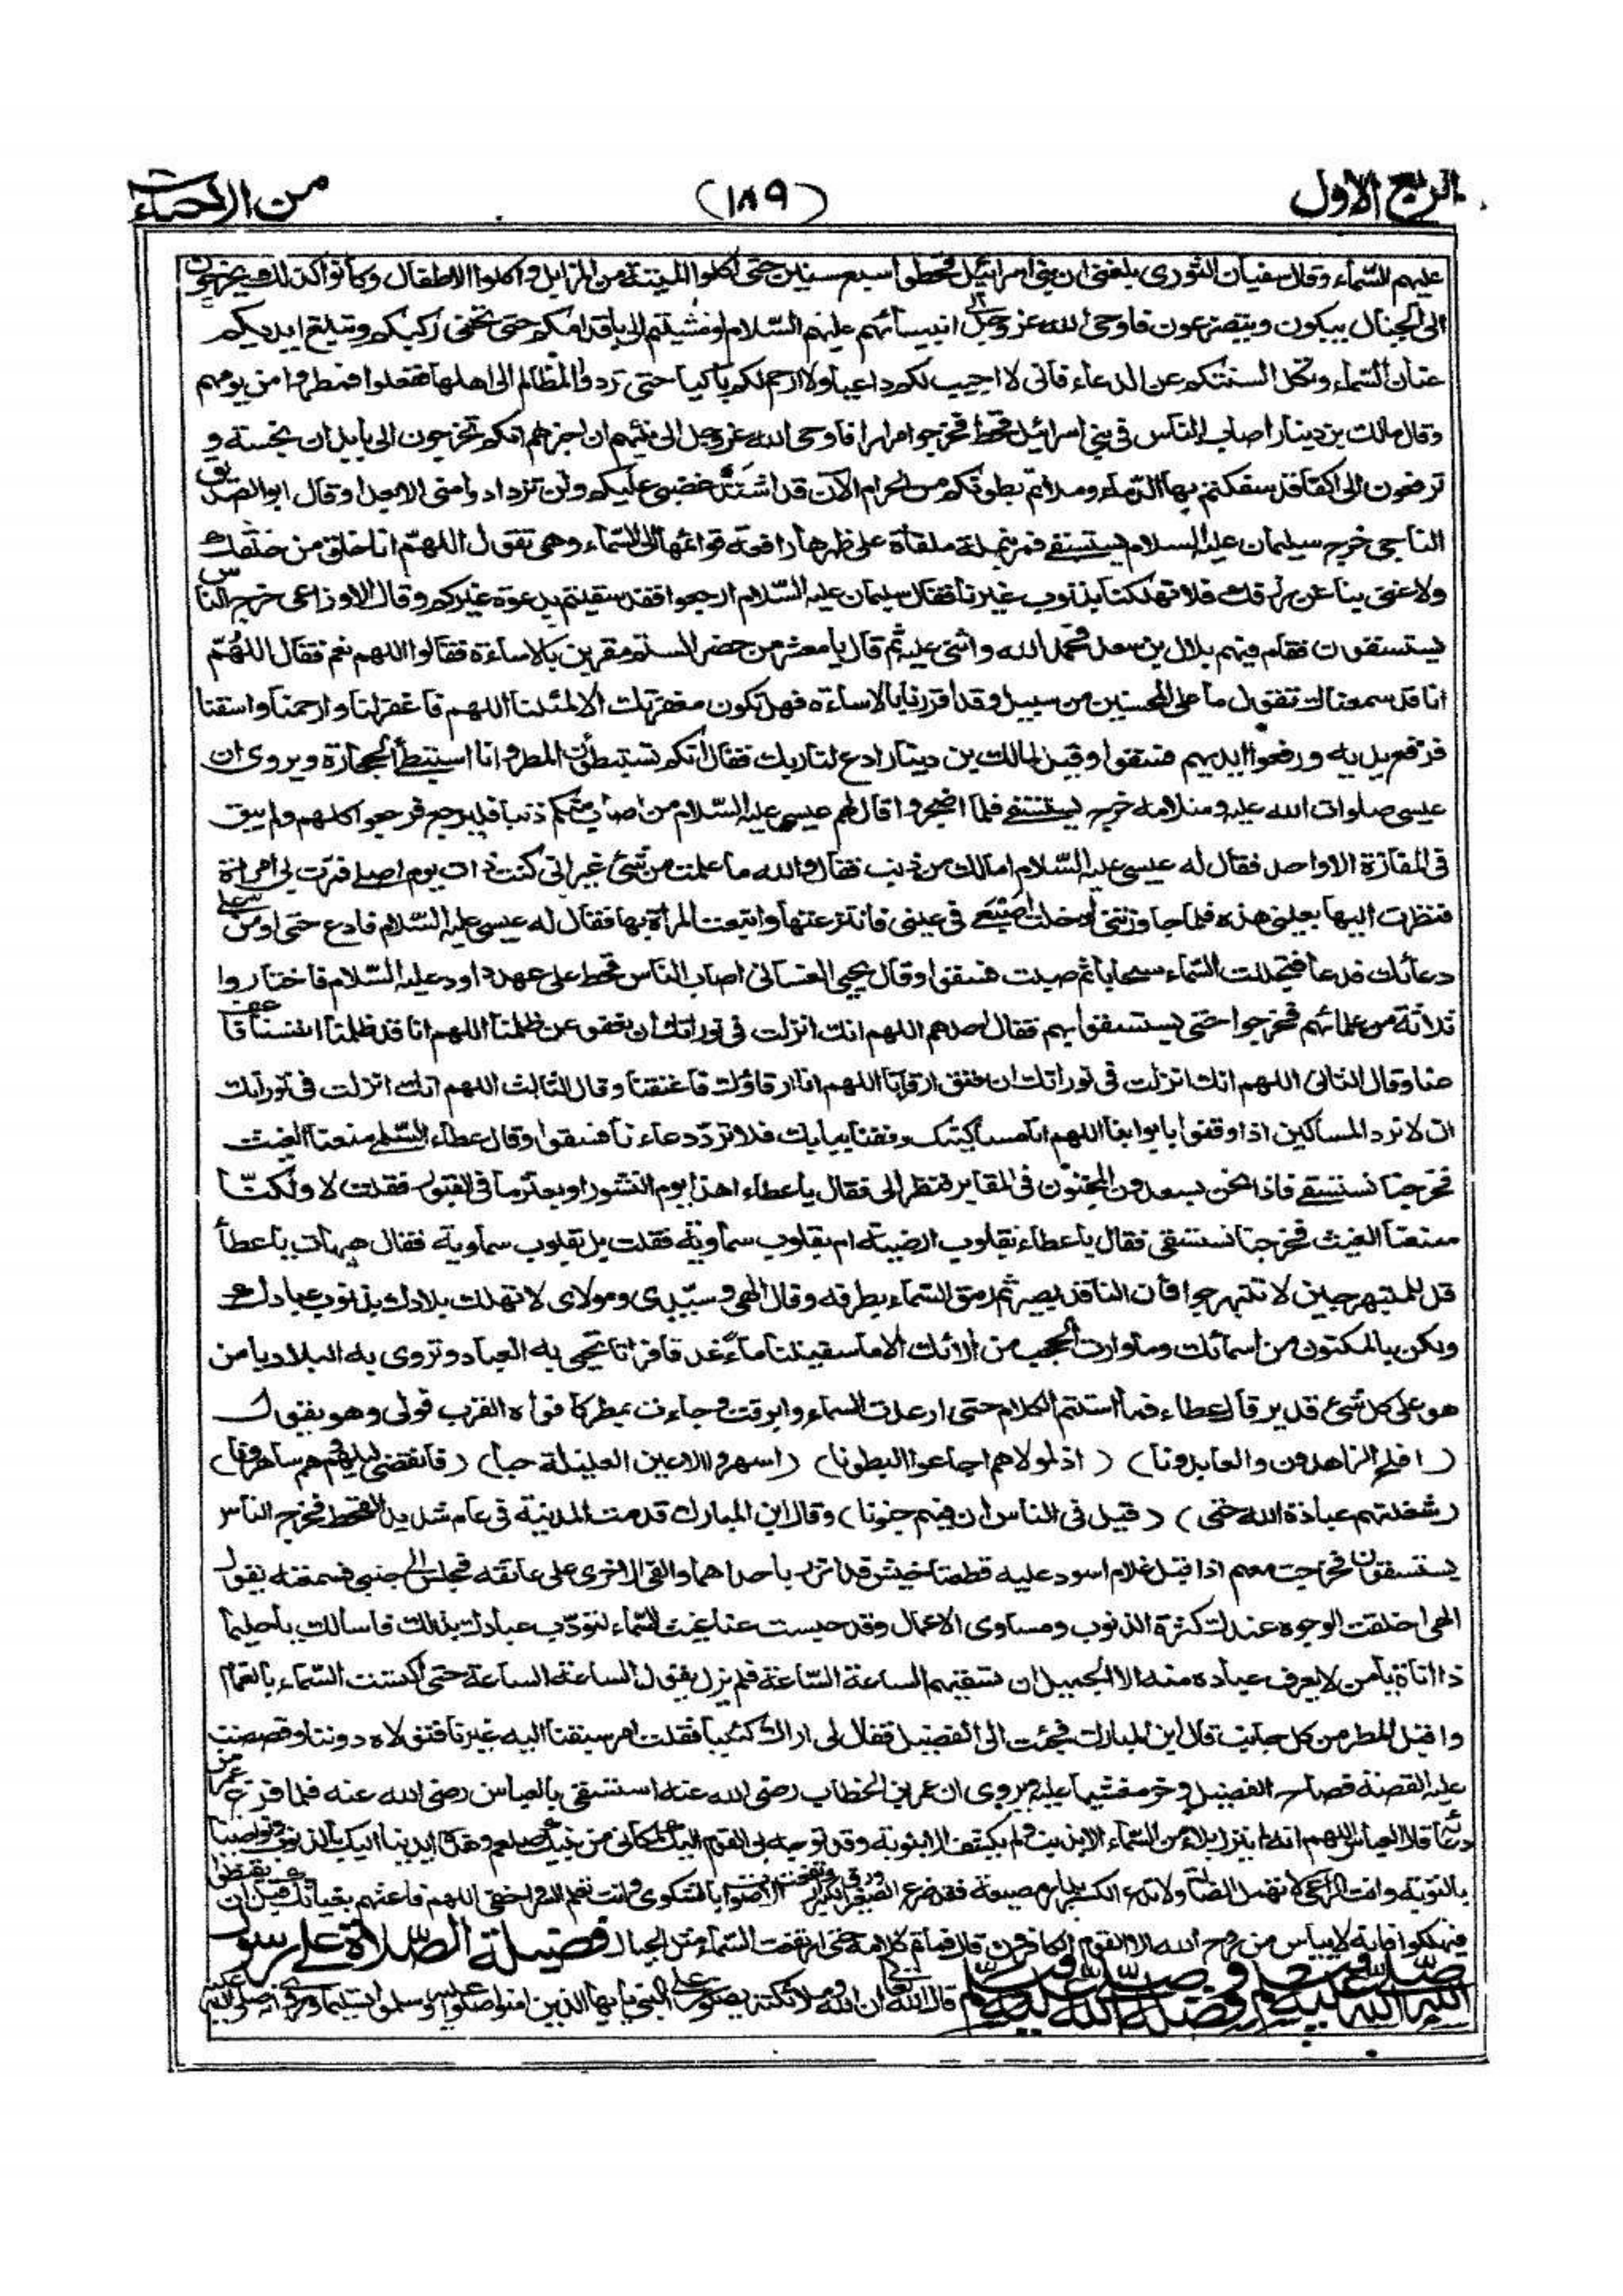 الربع الاول (١٨٩) من الاحياء
عليهم السّماء وقال سفيان الثوري بلغني ان بني اسرائيل قحطوا سبع سنين حتى اكلوا الميتة من المزابل واكلوا الاطفال وكانوا كذلك يخرجون
الى الجبال يبكون ويتضرعون فاوحى الله عز وجل الى انبيائهم عليهم السّلام لو مشيتم الي باقدامكم حتى تحفى ركبكم وتبلغ ايديكم
عنان السّماء وتكل السنتكم عن الدعاء فاني لا اجيب لكم داعيا ولا ارحم لكم باكيا حتى تردوا المظالم الى اهلها ففعلوا فمطروا من يومهم
وقال مالك بن دينار اصاب الناس في بني اسرائيل قحط فخرجوا مرارا فاوحى الله عز وجل الى نبيهم ان اخبرهم انكم تخرجون الي بابدان نجسة و
ترفعون الي اكفا قد سفكتم بها الدماء وملاتم بطونكم من الحرام الآن قد اشتد غضبي عليكم ولن تزدادوا مني الا بعدا وقال ابو الصديق
الناجي خرج سليمان عليه السلام يستسقي فمر بنملة ملقاة على ظهرها رافعة قوائمها الى السّماء وهي تقول اللهمّ انا خلق من خلقك
ولا غنى بنا عن رزقك فلا تهلكنا بذنوب غيرنا فقال سليمان عليه السّلام ارجعوا فقد سقيتم بدعوة غيركم وقال الاوزاعي خرج الناس
يستسقون فقام فيهم بلال بن سعد فحمد الله واثنى عليه ثم قال يا معشر من حضر الستم مقرين بالاساءة فقالوا اللهم نعم فقال اللهُمّ
انا قد سمعناك تقول ما على المحسنين من سبيل وقد اقررنا بالاساءة فهل تكون مغفرتك الا لمثلنا اللهم فاغفر لنا وارحمنا واسقنا
فرفع يديه ورفعوا ايديهم فسقوا وقيل لمالك بن دينار ادع لنا ربك فقال انكم تستبطؤن المطر وانا استبطأ الحجارة ويروى ان
عيسى صلوات الله عليه وسلامه خرج يستسقي فلما اضجروا قال لهم عيسى عليه السّلام من اصاب منكم ذنبا فليرجع فرجعوا كلهم ولم يبق
في المفازة الا واحد فقال له عيسى عليه السّلام امالك من ذنب فقال والله ما علمت من شئ غير اني كنت ذات يوم اصلي فمرت بي امراة
فنظرت اليها بعيني هذه فلما جاوزتني ادخلت اصبعي في عيني فانتزعتها واتبعت المرأة بها فقال له عيسى عليه السّلام فادع حتى اومن على
دعائك فدعا فتجللت السّماء سحابا ثم صبت فسقوا وقال يحيى الغساني اصاب الناس قحط على عهد داود عليه السّلام فاختاروا
ثلاثة من علمائهم فخرجوا حتى يستسقوا بهم فقال احدهم اللهم انك انزلت في توراتك ان نعفو عن ظلمنا اللهم انا قد ظلمنا انفسنا فاعف
عنا وقال الثاني اللهم انك انزلت في توراتك ان نعتق ارقاءنا اللهم انا ارقاؤك فاعتقنا وقال الثالث اللهم انك انزلت في توراتك
ان لا نرد المساكين اذا وقفوا بابوابنا اللهم انا مساكينك وقفنا ببابك فلا تردّ دعاءنا فسقوا وقال عطاء السّلمي منعنا الغيث
فخرجنا نستسقي فاذا نحن بسعدون المجنون في المقابر فنظر الي فقال يا عطاء اهذا يوم النشور او بعثر ما في القبور فقلت لا ولكنّا
منعنا الغيث فخرجنا نستسقي فقال يا عطاء بقلوب ارضية ام بقلوب سماوية فقلت بل بقلوب سماوية فقال هيهات يا عطأ
قل للمتبهرجين لا تتبهرجوا فأن الناقد بصير ثم رمق السّماء بطرفه وقال الهي وسيّدي ومولاي لا تهلك بلادك بذنوب عبادك
ولكن بالمكنون من اسمائك وما وارت الحجب من آلائك الا ما سقيتنا ماءً غدقا فراتا تحيي به العباد وتروي به البلاد يا من
هو على كل شئ قدير قال عطاء فما استتم الكلام حتى ارعدت السماء وابرقت وجاءت بمطر كافواه القرب فولى وهو يقول
( افلح الزاهدون والعابدونا ) ( اذ لمولاهم اجاعوا البطونا ) ( اسهروا الاعين العليلة حبا ) ( فانقضى ليلهم وهم ساهرونا )
( شغلتهم عبادة الله حتى ) ( قيل في الناس ان فيهم جنونا ) وقال ابن المبارك قدمت المدينة في عام شديد القحط فخرج الناس
يستسقون فخرجت معهم اذ اقبل غلام اسود عليه قطعتا خيش قد اتزر باحداهما والقى الاخرى على عاتقه فجلس الى جنبي فسمعته يقول
الهي اخلقت الوجوه عندك كثرة الذنوب ومساوي الاعمال وقد حبست عنا غيث السّماء لتؤدّب عبادك بذلك فاسالك يا حليما
ذا اناة يا من لا يعرف عباده منه الا الجميل ان تسقيهم الساعة السّاعة فلم يزل يقول الساعة الساعة حتى اكتست السّماء بالغمام
واقبل المطر من كل جانب قال ابن المبارك فجئت الى الفضيل فقال لي اراك كئيبا فقلت امر سبقنا اليه غيرنا فتولاه دوننا وقصصت
عليه القصة فصاح الفضيل وخر مغشيا عليه ويروى ان عمر بن الخطاب رضي الله عنه استسقى بالعباس رضي الله عنه فلما فرغ عمر من
دعائه قال العباس اللهم انه لم ينزل بلاء من السّماء الا بذنب ولم يكشف الا بتوبة وقد توجه بي القوم اليك لمكاني من نبيك صلعم وهذه ايدينا اليك بالذنوب ونواصينا
بالتوبة وانت الراعي لا تهمل الضالة ولا تدع الكسير بدار مضيعة فقد ضرع الصغير ورق الكبير وارتفعت الاصوات بالشكوى وانت تعلم السر واخفى اللهم فاغثهم بغياثك قبل ان يقنطوا
فيهلكوا فانه لا ييأس من روح الله الا القوم الكافرون قال فما تم كلامه حتى ارتفعت السّماء مثل الجبال فضيلة الصّلاة على رسول
الله صلّى الله عليه وسلم وفضله صلّى الله عليه وسلّم قال الله تعالى ان الله وملائكته يصلون على النبي يا ايها الذين امنوا صلوا عليه وسلموا تسليما وروي انه صلى الله عليه